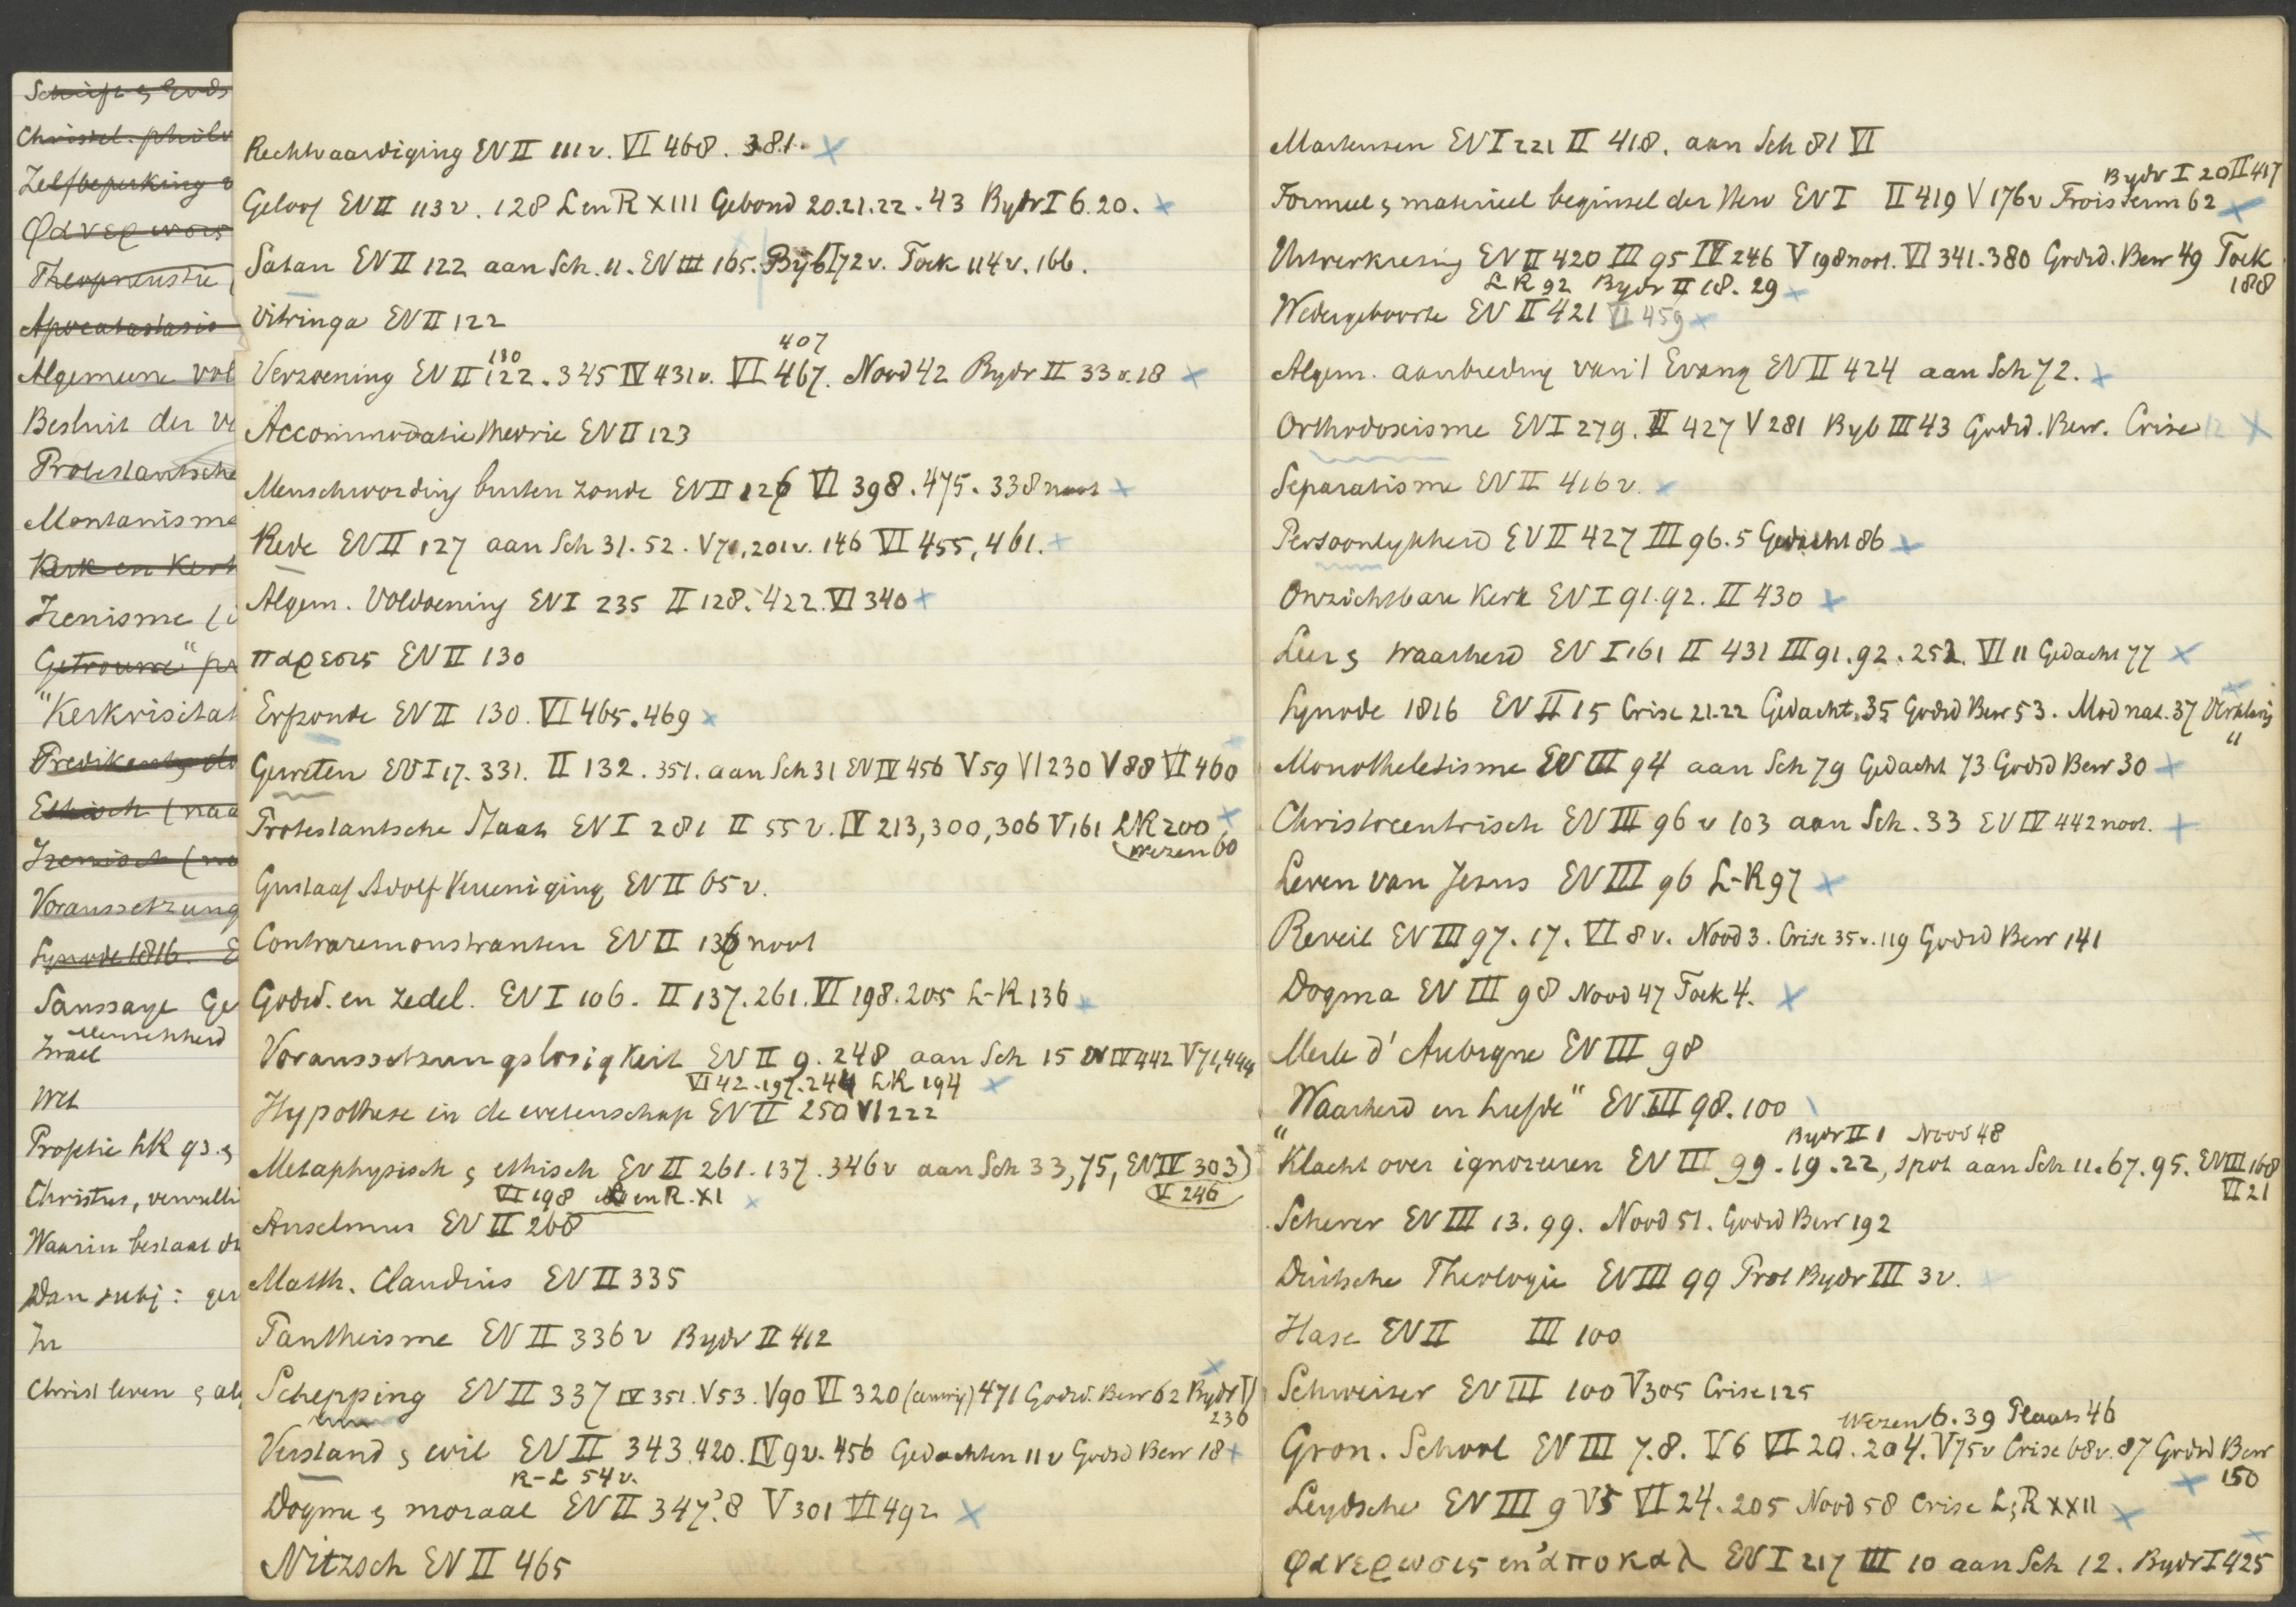 Schrift & Gods
Christel. philo
Zelfbeperking v
φανερωσις
Theopneustie
Apocatastasis
Algemeene vol
Besluit der ve
Protestantsche
Montanisme
Kerk en Kerk
Irenisme (i
Getrouwe" pr
"Kerkrischat
Predikant, do
Ethisch (naa
Irenisch (na
Voraussetzung
Synode 1816. E
Saussaye Ge
Menschheid
Israel
Wet
Profetie LK 93. &
Christus, vervulli
Waarin bestaat de
Dan subj: ger
In
Christ leven & al
Rechtvaardiging EV II 111 v. VI 468. 381.
Geloof EV II 113 v. 128 L en R XIII Gebond 20.21.22. 43 Bydr I 6.20.
Satan EV II 122 aan Sch. 11. EV III 165. Byb I 72 v. Toek 114 v. 166.
Vitringa EV II 122
130 407
Verzoening EV II 122. 345 IV 431 v. VI 467. Nood 42 Bydr II 33 v. 18
Accommodatie theorie EV II 123
Menschwording buiten zonde EV II 126 VI 398. 475. 338 noot
Rede EV II 127 aan Sch 31. 52. V 71, 201 v. 146 VI 455, 461.
Algem. Voldoening EV I 235 II 128. 422. VI 340
παρεσις EV II 130
Erfzonde EV II 130. VI 465. 469
Geweten EV I 17. 331. II 132. 351. aan Sch 31 EV IV 456 V 59 VI 230 V 88 VI 460
Protestantsche Staat EV I 281 II 55 v. IV 213, 300, 306 V 161 LR 200
Wezen 60
Gustaaf Adolf Vereeniging EV II 65 v.
Contraremonstranten EV II 136 noot
Godsd. en zedel. EV I 106. II 137. 261. VI 198. 205 L-R 136
Voraussetzungslosigkeit EV II 9. 248 aan Sch 15 EV IV 442 V 71, 444
VI 42. 197. 244 LR 194
Hypothese in de wetenschap EV II 250 VI 222
Metaphysisch & ethisch EV II 261. 137. 346 v aan Sch 33, 75, EV IV 303)
VI 198 L en R. XI V 246
Anselmus EV II 268
Matth. Claudius EV II 335
Pantheisme EV II 336 v Bydr II 412
Schepping EV II 337 IV 351. V 53. V 90 VI 320 (eeuwig) 471 Godsd. Bew 62 Bydr VI
236
Verstand & wil EV II 343. 420. IV 9 v. 456 Gedachten 11 v Godsd Bew 18
R-L 54 v.
Dogma & moraal EV II 347. 8 V 301 VI 492
Nitzsch EV II 465
Martensen EV I 221 II 418. aan Sch 81 VI
Bydr I 20 II 417
Formeel & materieel beginsel der Herv EV I II 419 V 176 v Trois Serm 62
Uitverkiezing EV II 420 III 95 IV 246 V 198 noot. VI 341. 380 Godsd. Bew 49 Toek
LR 92 Bydr II 18. 29 188
Wedergeboorte EV II 421 VI 459
Algem. aanbieding van 't Evang EV II 424 aan Sch 72.
Orthodoxisme EV I 279. II 427 V 281 Byb III 43 Godsd. Bew. Crise 12
Separatisme EV II 416 v.
Persoonlykheid EV II 427 III 96. 5 Gedacht 86
Onzichtbare Kerk EV I 91. 92. II 430
Leer & waarheid EV I 161 II 431 III 91. 92. 252. VI 11 Gedacht 77
Synode 1816 EV II 15 Crise 21-22 Gedacht. 35 Godsd Bew 53. Mod nat. 37 Verklaring
Monotheletisme EV III 94 aan Sch 79 Gedacht 73 Godsd Bew 30 "
Christocentrisch EV III 96 v 103 aan Sch. 33 EV IV 442 noot.
Leven van Jesus EV III 96 L-R 97
Reveil EV III 97. 17. VI 8 v. Nood 3. Crise 35 v. 119 Godsd Bew 141
Dogma EV III 98 Nood 47 Toek 4.
Merle d'Aubigne EV III 98
"Waarheid en liefde" EV III 98. 100
Bydr II 1 Nood 48
"Klacht over ignoreren EV III 99. 19. 22, spot aan Sch 11. 67. 95. EV III 168
VI 21
Scherer EV III 13. 99. Nood 51. Godsd Bew 192
Duitsche Theologie EV III 99 Prot Bydr III 3 v.
Hase EV II III 100
Schweizer EV III 100 V 305 Crise 125
Wezen 6. 39 Plaats 46
Gron. School EV III 7. 8. V 6 VI 20. 204. V 75 v Crise 68 v. 87 Godsd Bew
150
Leydsche EV III 9 V 5 VI 24. 205 Nood 58 Crise L & R XXII
φανερωσις en ἀποκαλ EV I 217 III 10 aan Sch 12. Bydr I 425